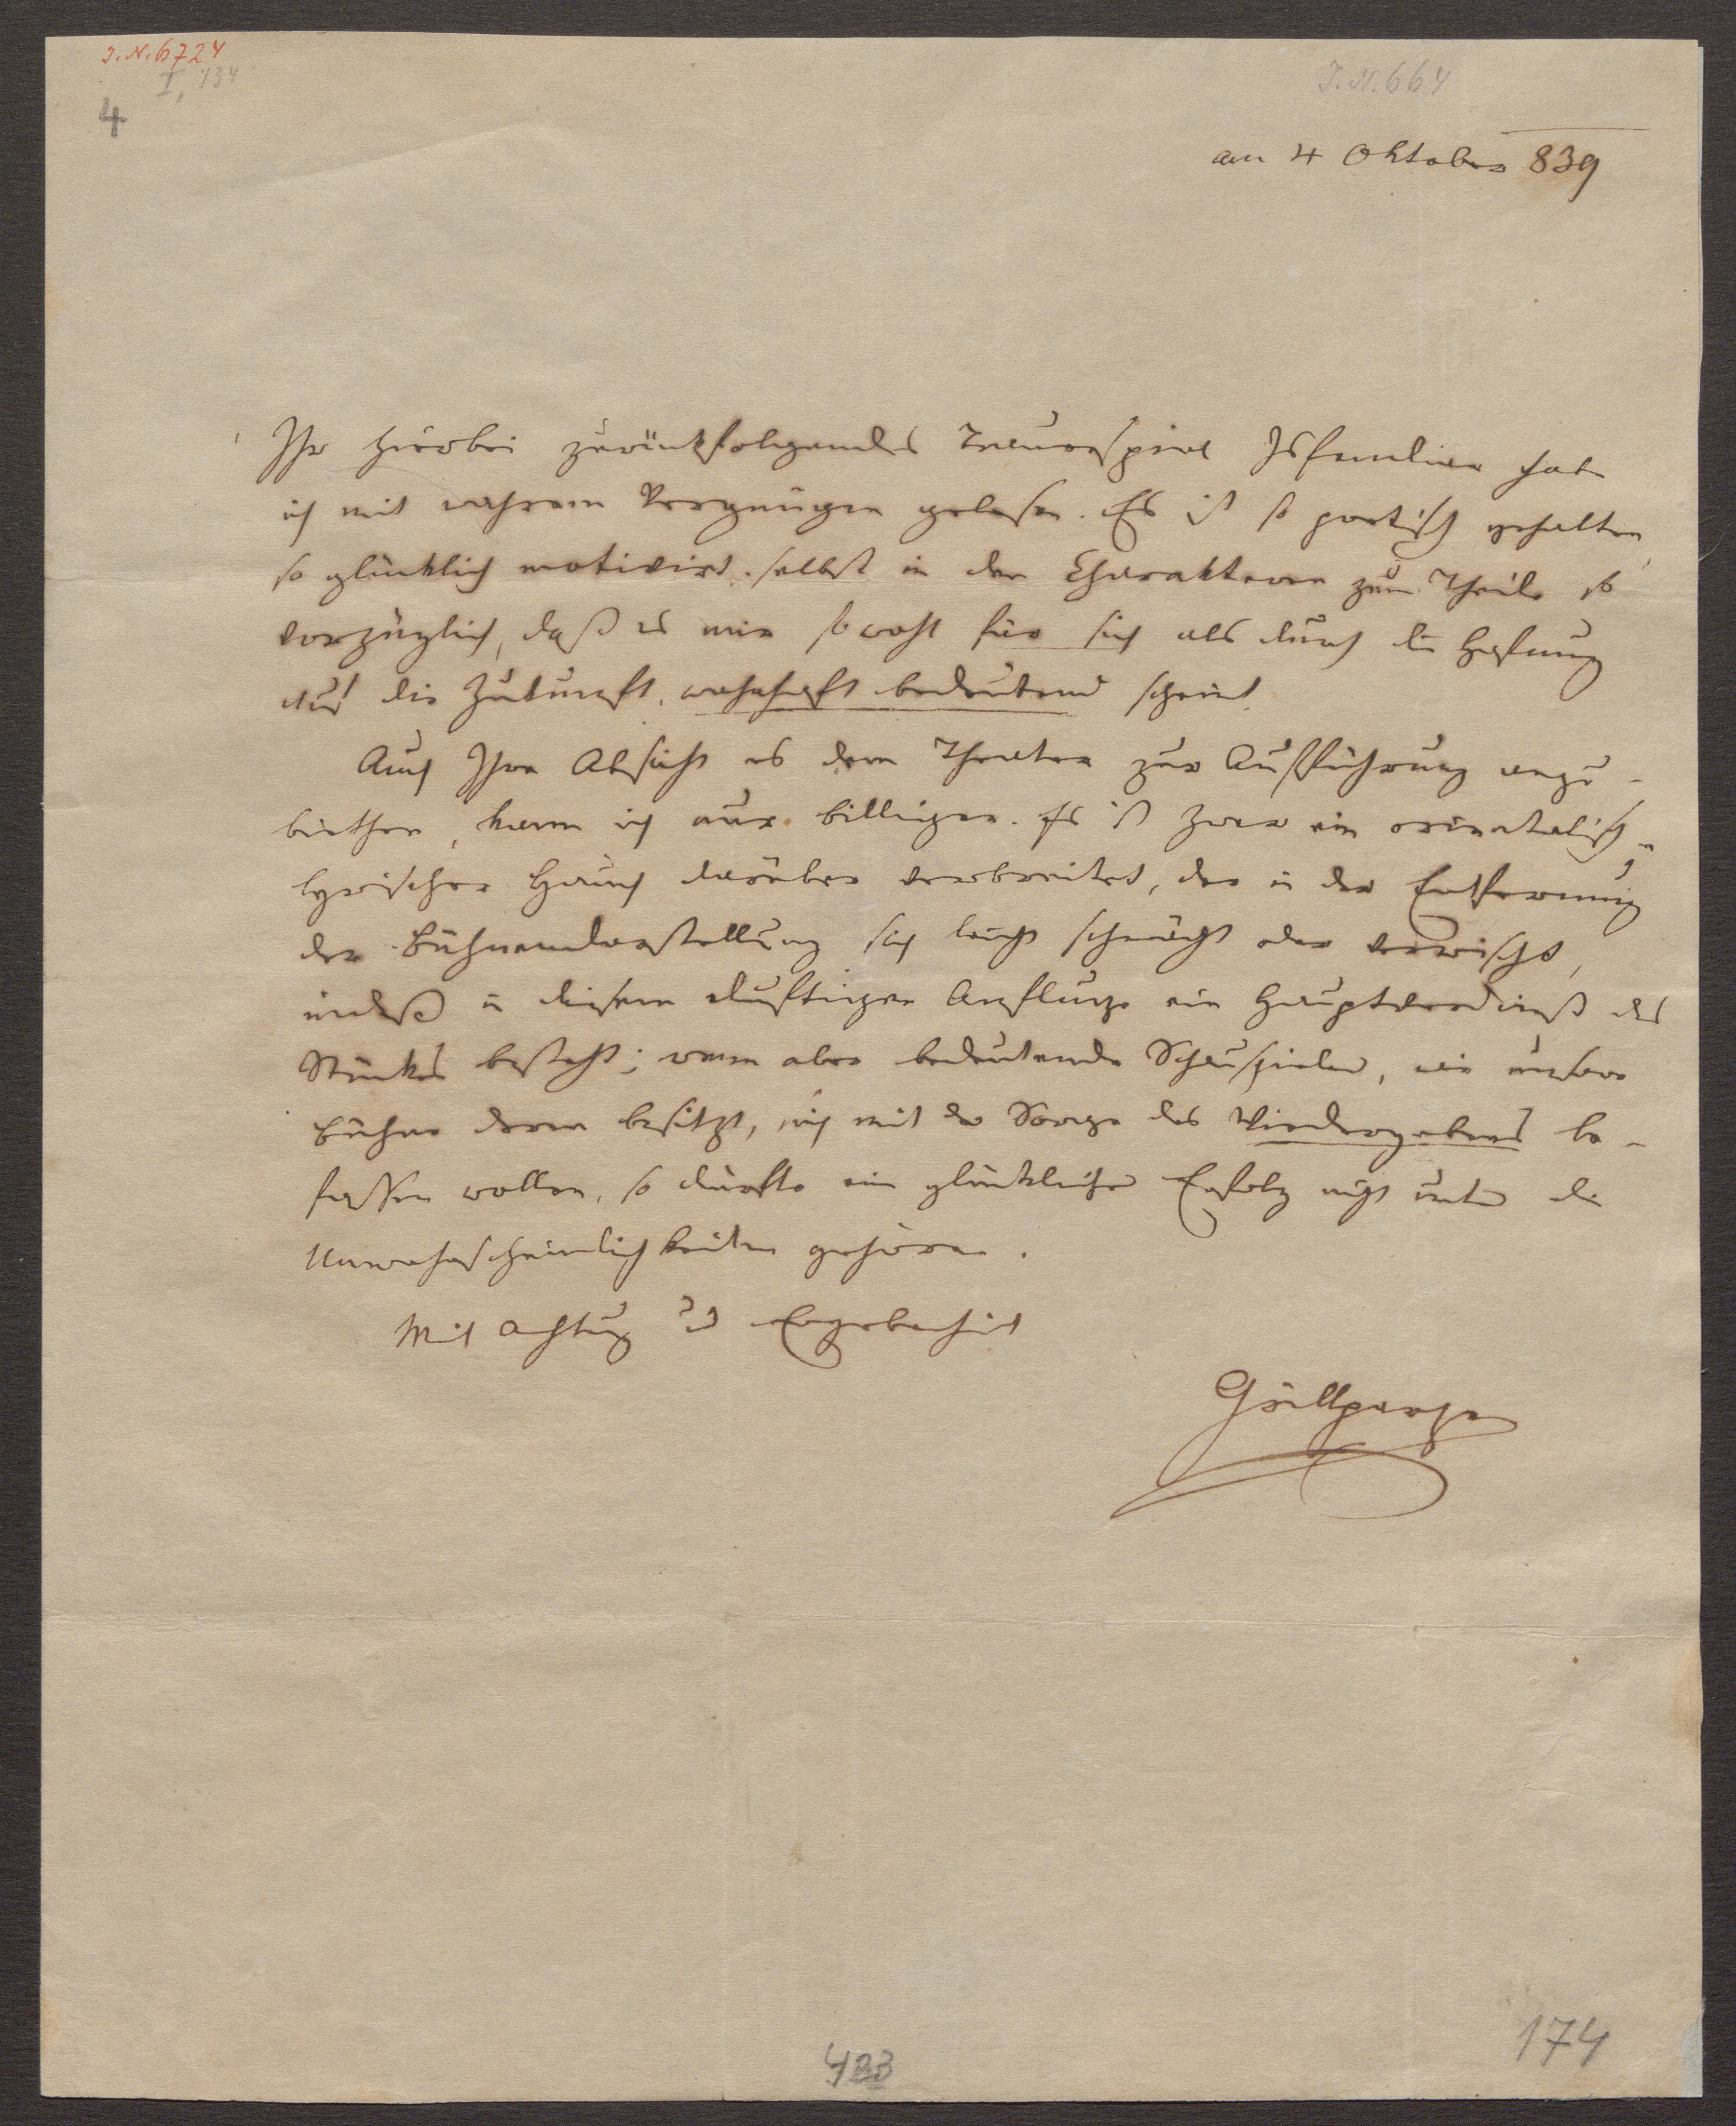 I.N. 6724
I, 434
4
I.N. 664
am 4 Oktober 839
Ihr hierbei zurückfolgendes Trauerspiel Isfendiar habe
ich mit wahrem Vergnügen gelesen. Es ist so poetisch gehalten,
so glücklich motivirt, selbst in den Charakteren zum Theile so
vorzüglich, daß es mir sowohl für sich als durch die Hofnung
auf die Zukunft, wahrhaft bedeutend scheint.
Auch Ihre Absicht es dem Theater zur Aufführung anzu-
biethen, kann ich nur billigen. Es ist zwar ein orientalisch-
lyrischer Hauch darüber verbreitet, der in der Entfernung
der Bühnendarstellung sich leicht schwächt oder verwischt,
indeß in diesem duftigen Anfluge ein Hauptverdienst des
Stückes besteht; wenn aber bedeutende Schauspieler, wie unsere
Bühne deren besitzt, sich mit der Sorge des Wiedergebens be-
fassen wollen, so dürfte ein glücklicher Erfolg nicht unter die
Unwahrscheinlichkeiten gehören.
Mit Achtung und Ergebenheit
Grillparzer
423
174